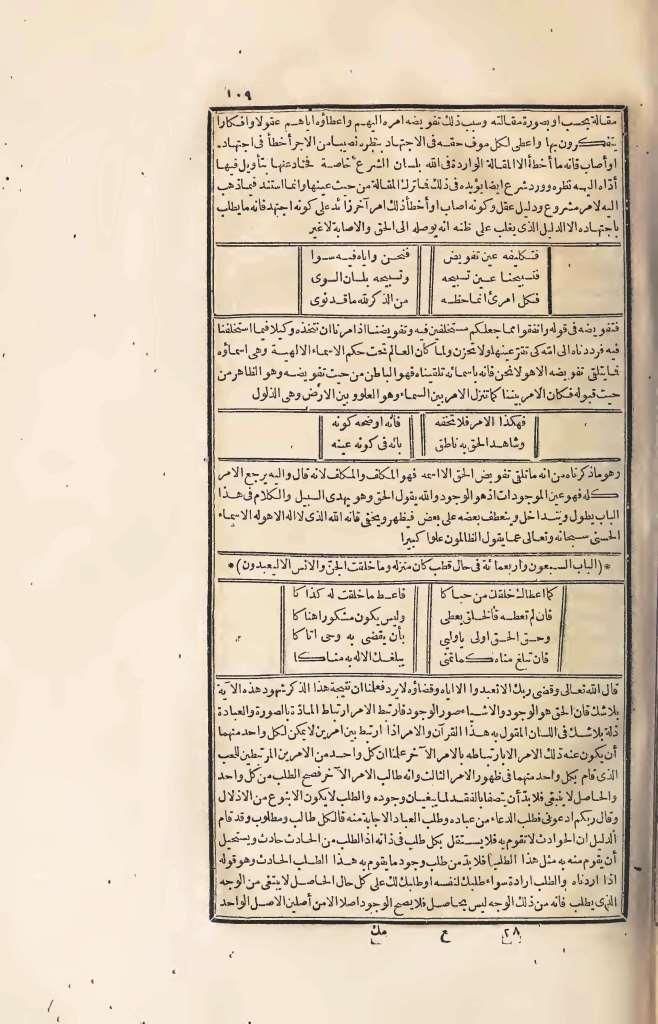 ١٠٩
مقالة بحسب او بصورة مقالته وسبب ذلك تفويضه امره اليهم واعطاؤه اياهم عقولا وافكارا
يتفكرون بها واعطى لكل موف حقه فى الاجتهاد بنظره نصيبا من الاجر أخطأ فى اجتهاده
او أصاب فانه ما أخطأ الا المقالة الواردة فى الله بلسان الشرع خاصة فحاد عنها بتأويل فيها
أداه اليه نظره وورد شرع ايضا يؤيده فى ذلك فما ترك المقالة من حيث عينها وانما استند فيما ذهب
اليه لامر مشروع ودليل عقل وكونه اصاب او أخطأ ذلك امر آخر زائد على كونه اجتهد فانه ما يطلب
باجتهاده الا الدليل الذى يغلب على ظنه انه يوصله الى الحق والاصابة لا غير
فتكليفه عين تفويض فنحن واياه فيه سوا
فتسبيحنا عين تسبيحه وتسبيحه بلسان السوى
فكل امرئ انما حظه من الذكر لله ما قد نوى
فتفويضه فى قوله وانفقوا مما جعلكم مستخلفين فيه وتفويضنا اذ امرنا ان نتخذه وكيلا فيما استخلفنا
فيه فرددناه الى امّه كى تقرّ عينها ولا تحزن ولما كان العالم تحت حكم الاسماء الالهية وهى اسماؤه
فما يتلقى تفويضه الا هو لا نحن فانه باسمائه تلقيناه فهو الباطن من حيث تفويضه وهو الظاهر من
حيث قبوله فكان الامر بيننا كما تنزل الامر بين السماء وهو العلو وبين الارض وهى الذلول
فهكذا الامر فلا تخفه فانه اوضحه كونه
وشاهد الحق به ناطق بانه فى كونه عينه
وهو ما ذكرناه من انه ما تلقى تفويض الحق الا اسمه فهو المكلف والمكلف لانه قال واليه يرجع الامر
كله فهو عين الموجودات اذ هو الوجود والله يقول الحق وهو يهدى السبيل والكلام فى هذا
الباب يطول ويتداخل وينعطف بعضه على بعض فيظهر ويخفى فانه الله الذى لا اله الا هو له الاسماء
الحسنى سبحانه وتعالى عما يقول الظالمون علوا كبيرا
*(الباب السبعون واربعمائة فى حال قطب كان منزله وما خلقت الجنّ والانس الا ليعبدون)*
كما اعطاك خلقك من حباكا فاعط ما خلقت له كذا كا
فان لم تعطه فالخلق يعطى وليس يكون مشكورا هناكا
وحق الحق اولى يا ولي بأن يقضى به وحى اتاكا
فان تبلغ مناه كما تمنى يبلغك الاله به مناكا
قال الله تعالى وقضى ربك الا تعبدوا الا اياه وقضاؤه لا يرد فعلمنا ان نتيجة هذا الذكر شهود هذه الآية
بلا شك فان الحق هو الوجود والاشياء صور الوجود فارتبط الامر ارتباط المادّة بالصورة والعبادة
ذلة بلا شك فى اللسان المقول به هذا القرآن والامر اذا ارتبط بين امرين لا يمكن لكل واحد منهما
أن يكون عنه ذلك الامر الا بارتباطه بالامر الآخر علمنا ان كل واحد من الامرين المرتبطين للعب
الذى قام بكل واحد منهما فى ظهور الامر الثالث وانه طالب الامر الآخر فصح الطلب من كل واحد
والحاصل لا يبتغى فلا بدّ أن يتصفا بالفقد لما يبغيان وجوده والطلب لا يكون الا بنوع من الاذلال
وقال ربكم ادعونى فطلب الدعاء من عباده وطلب العباد الاجابة منه فالكل طالب ومطلوب وقد قام
الدليل ان الحوادث لا تقوم به فلا يستقل بكل طلب فى ذاته اذ الطلب من الحادث حادث ويستحيل
أن يقوم منه به مثل هذا الطلب) فلا بدّ من طلب وجود ما يقوم به هذا الطلب الحادث وهو قوله
اذا اردناه والطلب ارادة سواء طلبك لنفسه او طلبك لك على كل حال الحاصل لا يبتغى من الوجه
الذى يطلب فانه من ذلك الوجه ليس بحاصل فلا يصح الوجود اصلا الا من أصلين الاصل الواحد
٢٨ ع مك